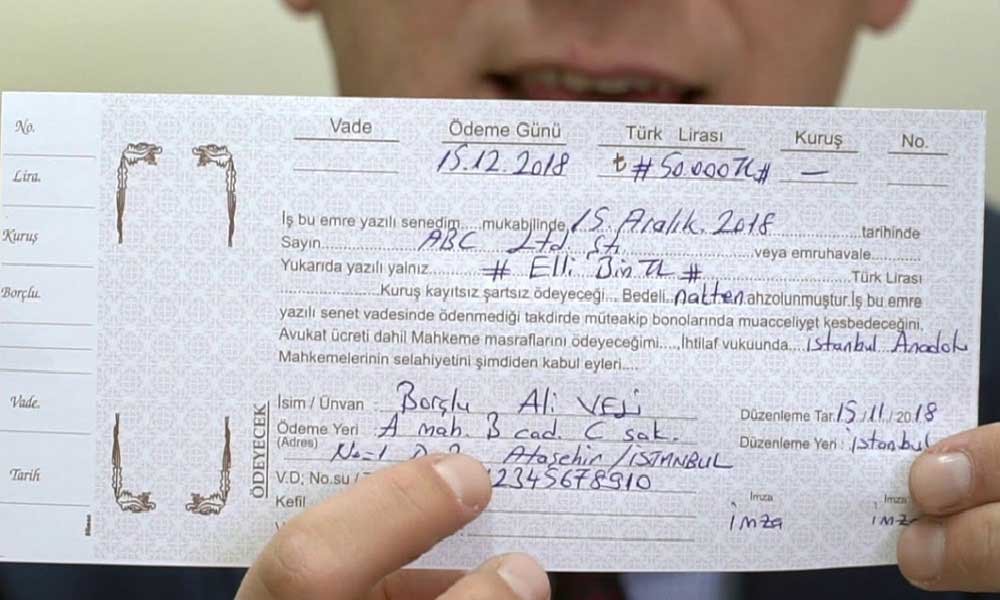 No.
Lira.
Kuruş
Borçlu.
Vade.
Tarih
Vade Ödeme Günü Türk Lirası Kuruş No.
15.12.2018 ₺ #50.000TL# —
İş bu emre yazılı senedim....mukabilinde 15. Aralık. 2018 tarihinde
Sayın ABC Ltd. Şti. veya emruhavale
Yukarıda yazılı yalnız # Elli Bin TL # Türk Lirası
Kuruş kayıtsız şartsız ödeyeceği.... Bedeli nakten ahzolunmuştur. İş bu emre
yazılı senet vadesinde ödenmediği takdirde müteakip bonolarında muacceliyet kesbedeceğini,
Avukat ücreti dahil Mahkeme masraflarını ödeyeceğimi....,İhtilaf vukuunda.... istanbul Anadolu
Mahkemelerinin selahiyetini şimdiden kabul eyleri....
ÖDEYECEK
İsim / Ünvan Borçlu Ali VELİ
Ödeme Yeri A mah. B cad. C sok.
(Adres) No=1 Ataşehir/İSTANBUL
V.D. No.su / 12345678910
Kefil
Düzenleme Tar. 15/11/2018
Düzenleme Yeri : istanbul
İmza İmza
imza imz